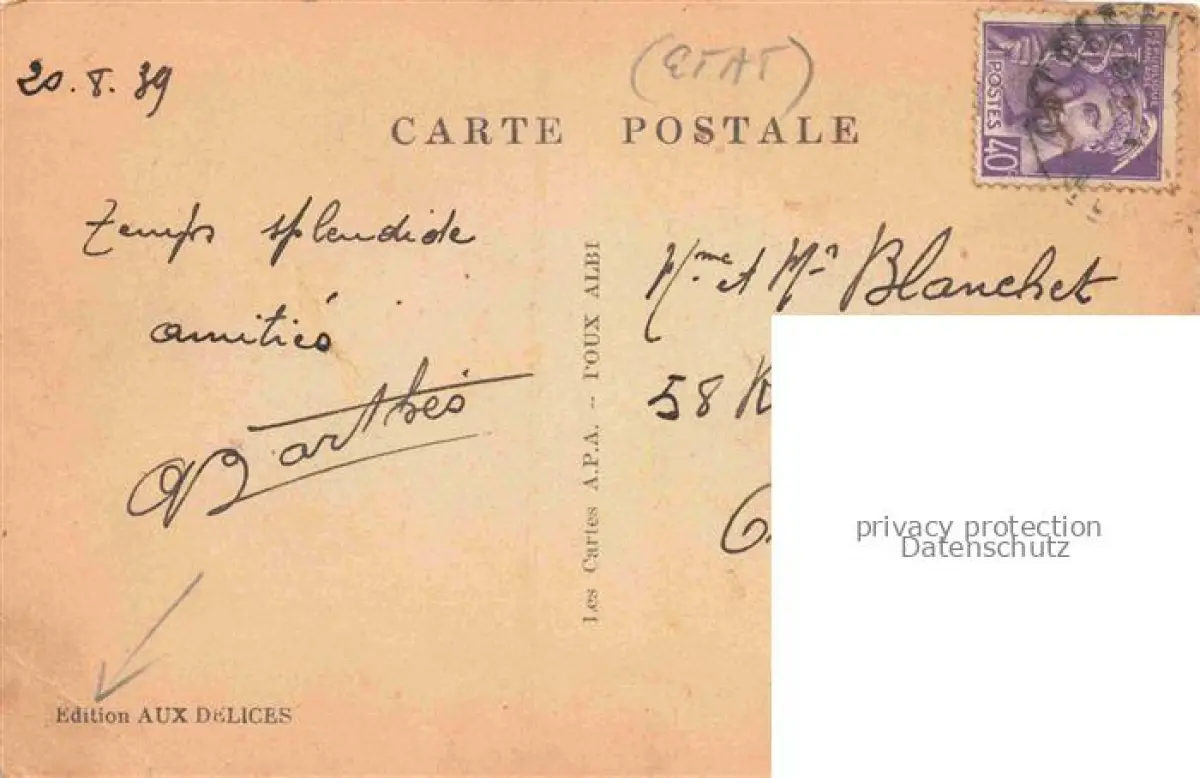 20.8.39
(ETAT)
CARTE POSTALE
POSTES
40c
Temps splendide
amitiés
Barthès
Mme et Mr Blanchet
58
Les Cartes A.P.A. -- POUX ALBI
privacy protection
Datenschutz
Edition AUX DELICES